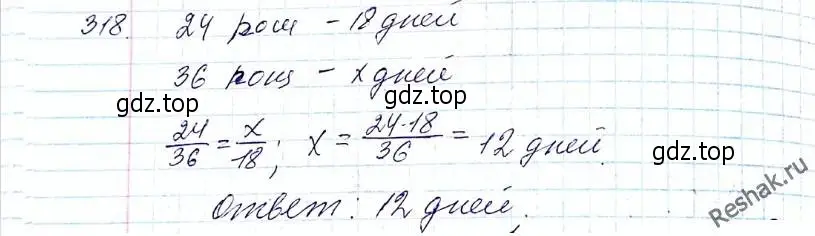 318. 24 рощ - 18 дней
36 рощ - x дней
gdz.top gdz.top
24/36 = x/18; x = 24·18/36 = 12 дней.
gdz.top
Ответ: 12 дней.
Reshak.ru